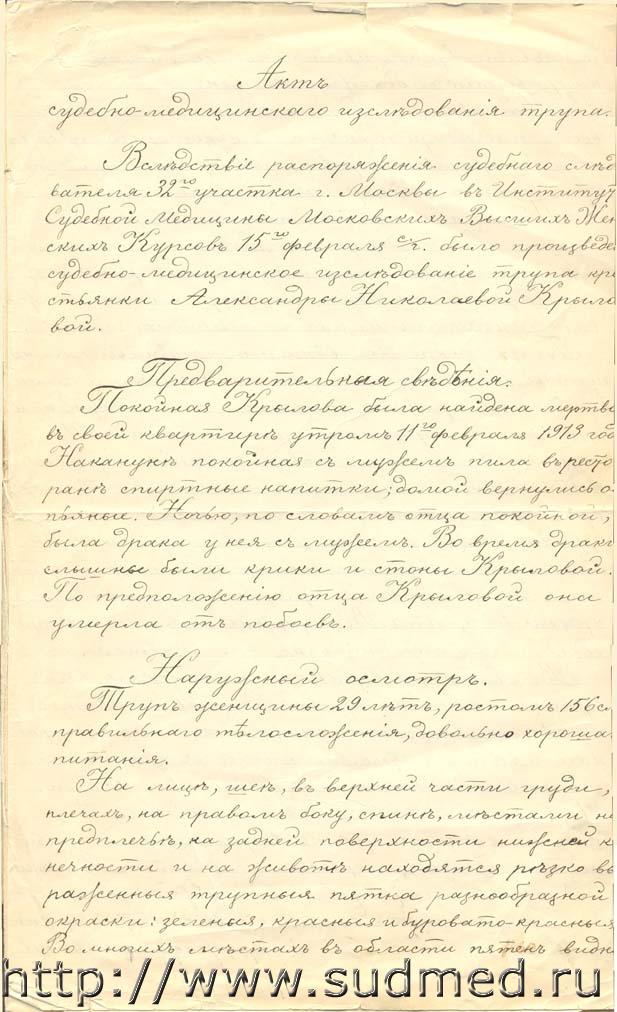 Актъ
судебно-медицинскаго изслѣдованія трупа.
Вслѣдствіе распоряженія судебнаго слѣд
вателя 32го участка г. Москвы въ Институт
Судебной Медицины Московскихъ Высшихъ Жен
скихъ Курсовъ 15го февраля с/г. было произведе
судебно-медицинское изслѣдованіе трупа кре
стьянки Александры Николаевой Крыло
вой.
Предварительныя свѣдѣнія.
Покойная Крылова была найдена мертво
въ своей квартирѣ утромъ 11го февраля 1913 год
Наканунѣ покойная съ мужемъ пила въ ресто
ранѣ спиртные напитки; домой вернулись о
пьяные. Ночью, по словамъ отца покойной,
была драка у нея съ мужемъ. Во время драки
слышны были крики и стоны Крыловой.
По предположенію отца Крыловой она
умерла отъ побоевъ.
Наружный осмотръ.
Трупъ женщины 29 лѣтъ, ростомъ 156 с
правильнаго тѣлосложенія, довольно хороша
питанія.
На лицѣ, шеѣ, въ верхней части груди,
плечахъ, на правомъ боку, спинѣ, мѣстами н
предплечьѣ, на задней поверхности нижней к
нечности и на животѣ находятся рѣзко вы
раженныя трупныя пятна разнообразной
окраски: зеленыя, красныя и буровато-красныя
Во многихъ мѣстахъ въ области пятенъ видн
http://www.sudmed.ru